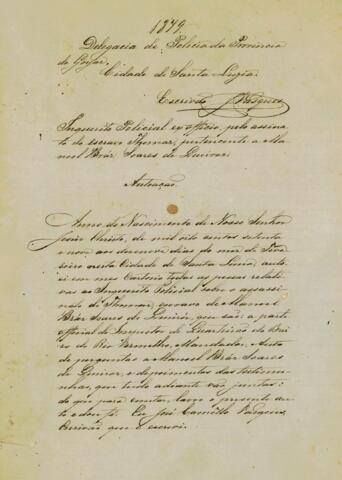 1879.
Delegacia de Policia da Provincia
de Goyaz.
Cidade de Santa Luzia.
Escrivão J. Vasques
Inquerito Policial ex officio, pelo assina-
to do escravo Thomaz, pertencente a Ma-
noel Bráz Soares de
Autoação.
Anno do Nascimento de Nosso Senhor
Jesus Christo, de mil oito centos setenta
e nove aos desenove dias do mez de Feve-
reiro nesta Cidade de Santa Luzia, autu-
ei em meu Cartorio todas as peças relati-
vas ao Inquerito Policial sobre o assassi-
nato de Thomaz, escravo de Manoel
Bráz Soares de que são: a parte
official do Inspector de Quarteirão do Bair-
ro do Rio Vermelho, Mandados, Auto
de perguntas a Manoel Bráz Soares
de e depoimentos das testimu-
nhas, que tudo adiante vão juntas:
do que para constar, lavro o presente au-
to e dou fé. Eu José Camillo Vasques,
Escrivão que o escrevi.